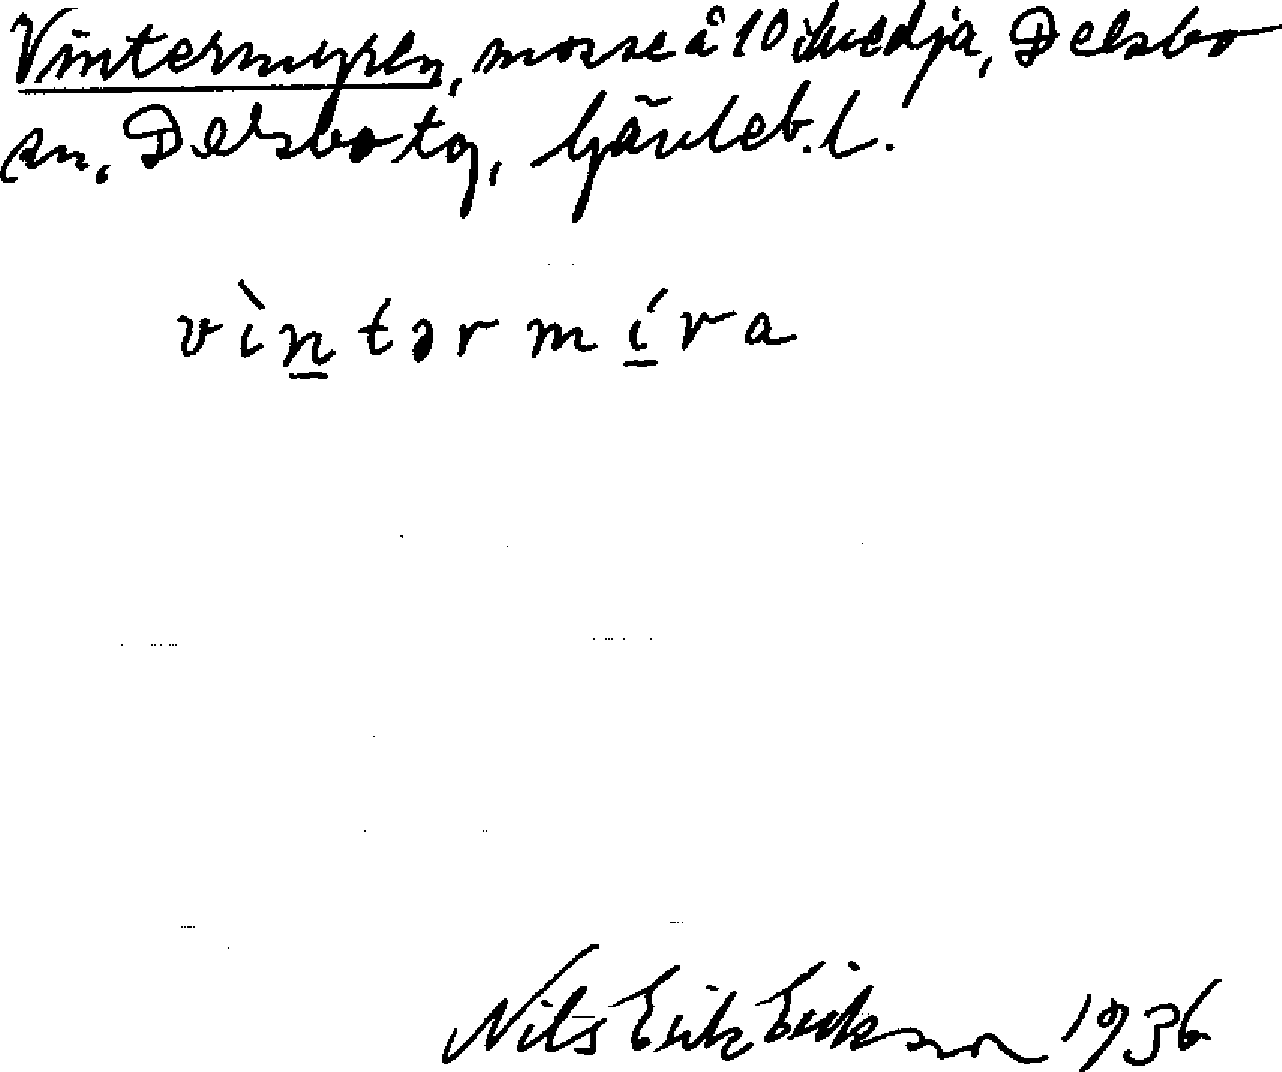 Vintermyren, mosse å 10 Svedja, Delsbo
sn, Delsbo tg, Gävleb. l.
vìntər míra
Nils Erik Erikson 1936